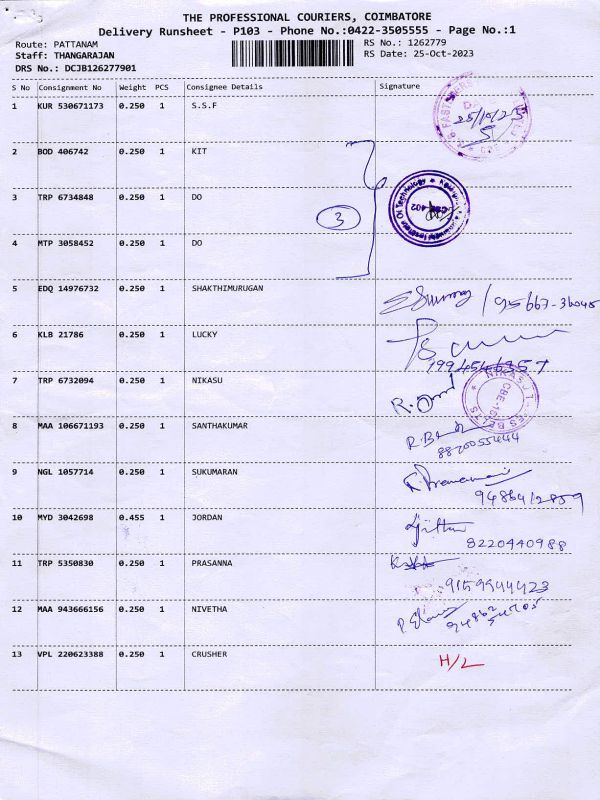 THE PROFESSIONAL COURIERS, COIMBATORE
Delivery Runsheet - P103 - Phone No.:0422-3505555 - Page No.:1
Route: PATTANAM RS No.: 1262779
Staff: THANGARAJAN RS Date: 25-Oct-2023
DRS No.: DCJB126277901
S No Consignment No Weight PCS Consignee Details Signature
1 KUR 530671173 0.250 1 S.S.F
25/10/25
2 BOD 406742 0.250 1 KIT
3 TRP 6734848 0.250 1 DO
3
CBE-402
4 MTP 3058452 0.250 1 DO
5 EDQ 14976732 0.250 1 SHAKTHIMURUGAN
6 KLB 21786 0.250 1 LUCKY
7 TRP 6732094 0.250 1 NIKASU
8 MAA 106671193 0.250 1 SANTHAKUMAR
8870055444
9 NGL 1057714 0.250 1 SUKUMARAN
9486412859
10 MYD 3042698 0.455 1 JORDAN
8220440988
11 TRP 5350830 0.250 1 PRASANNA
9159944423
12 MAA 943666156 0.250 1 NIVETHA
13 VPL 220623388 0.250 1 CRUSHER H/L